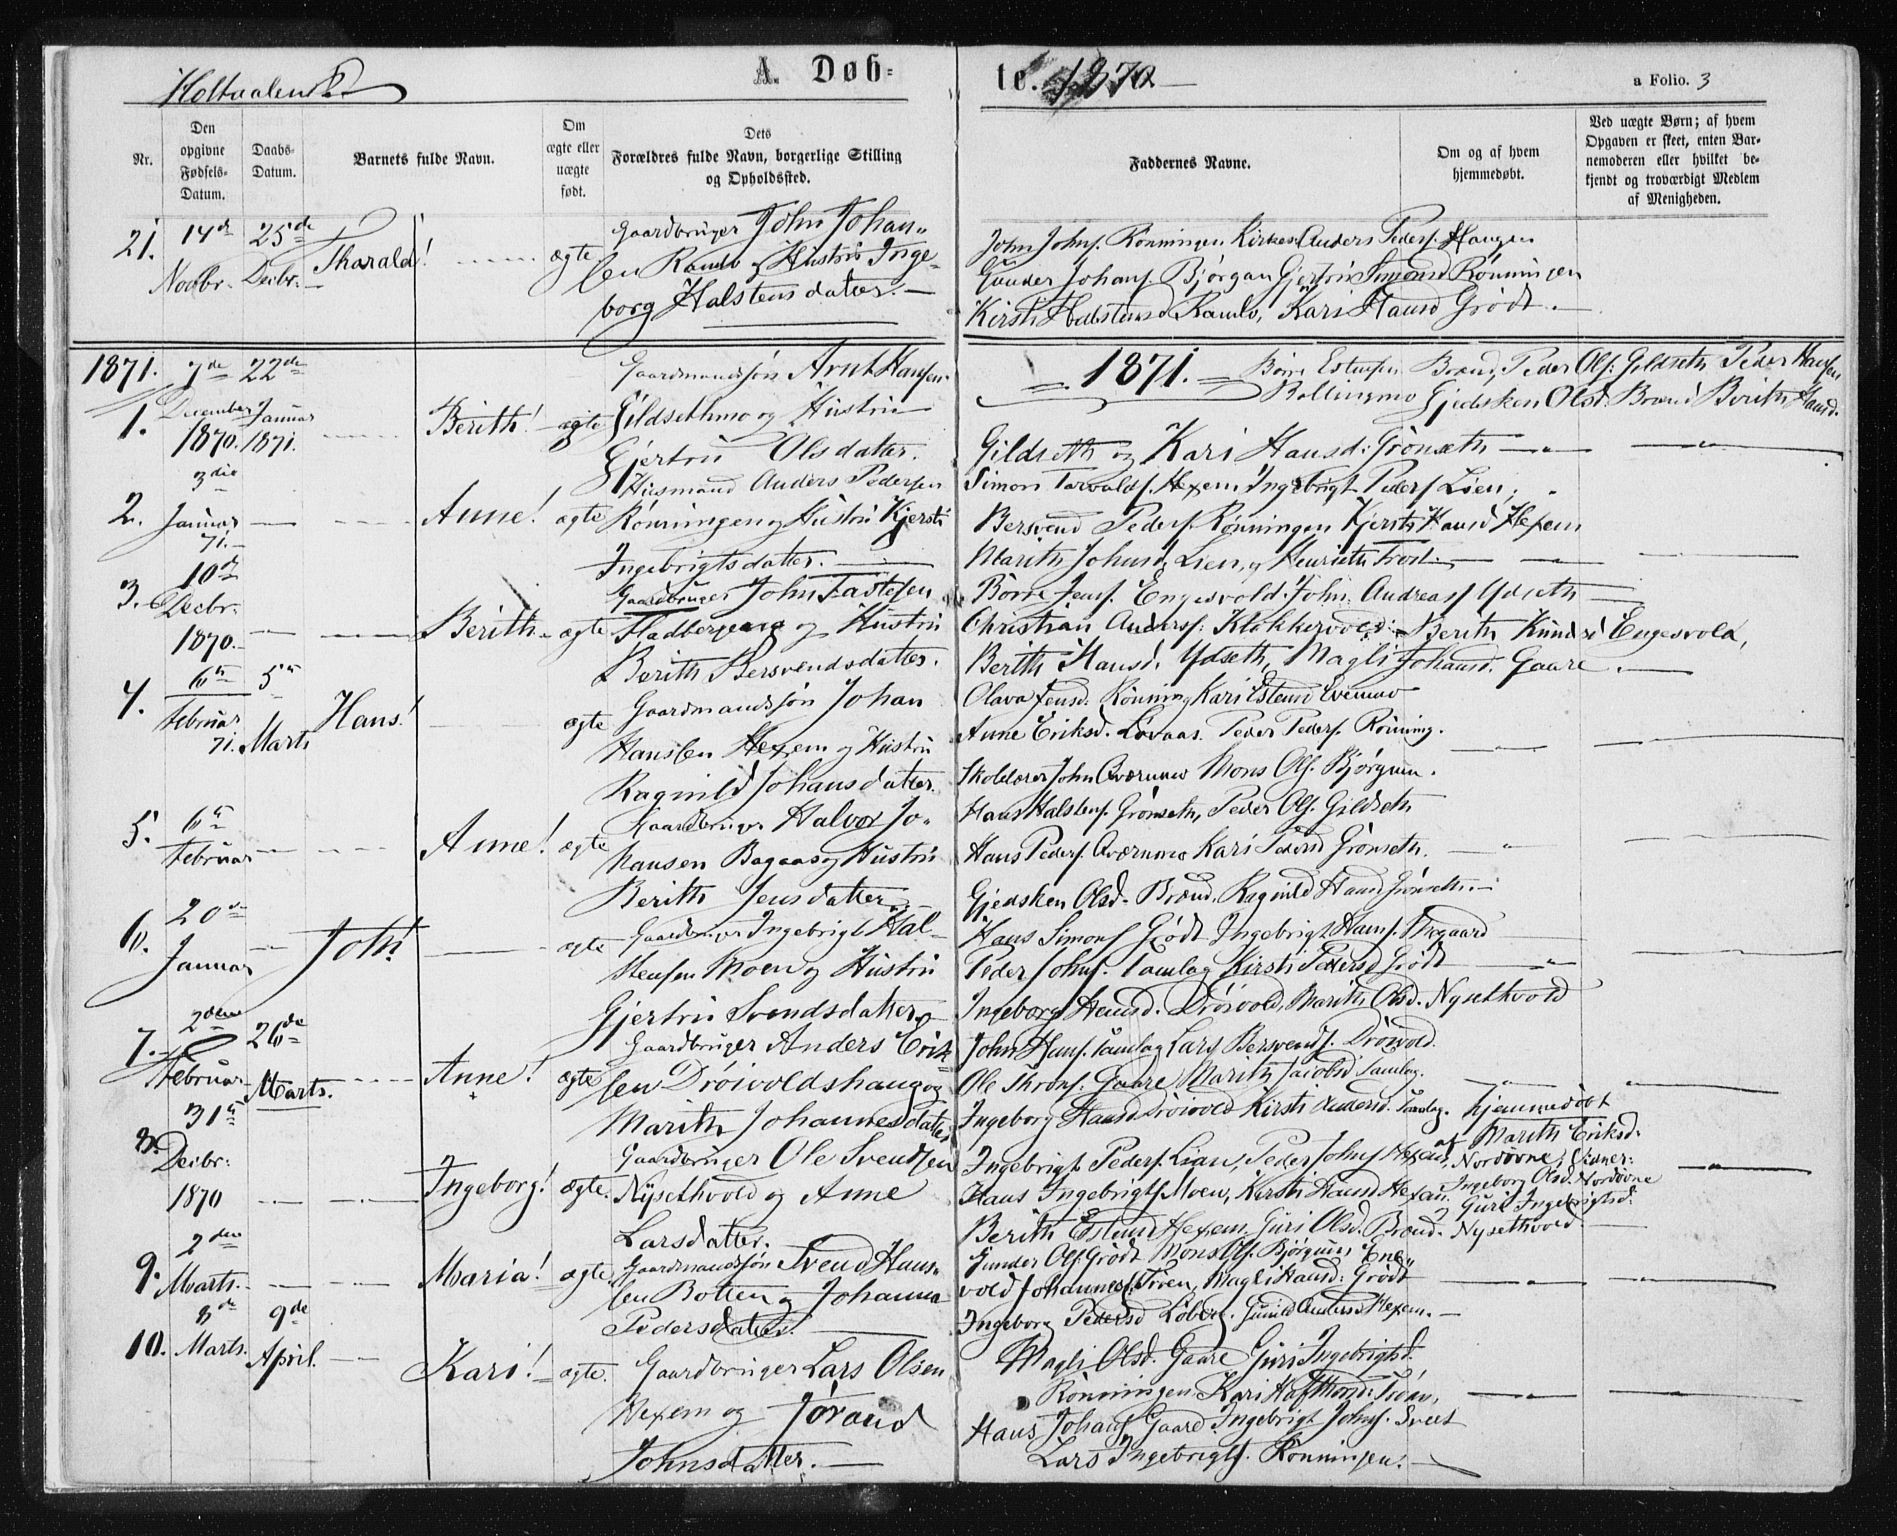 Holtaalen
A. Døb-
te. 1870
a Folio. 3
Nr.
Den opgivne Fødsels-Datum.
Daabs-Datum.
Barnets fulde Navn.
Om ægte eller uægte født.
Dets Forældres fulde Navn, borgerlige Stilling og Opholdssted.
Faddernes Navne.
Om og af hvem hjemmedøbt.
Ved uægte Børn; af hvem Opgaven er skeet, enten Barnemoderen eller hvilket bekjendt og troværdigt Medlem af Menigheden.
21. 14de Novbr. 25de Decbr. Tharald! ægte.
Gaardbruger John Johan-
sen Ramlo og Hustru Inge-
borg Halstensdatter.
John Johns. Rønningen Anders Peders. Haugen
Gunder Johans. Bjørgan Gjertru Simonsd Rønningen
Kirsti Halstensd Ramlo, Kari Hansd Grødt.
1871.
1871.
1. 7de December 1870. 22de Januar 1871. Berith! ægte
Gaardmandssøn Arnt Hansen
Gildsethmo og Hustru
Gjertru Olsdatter.
Børre Estensen Brænd, Peder Ols. Gildseth Peder Hansen
Bollingmo Gjedsken Olsd. Brænd Berith Hansd.
Gildseth og Kari Hansd. Grønseth
2. 3die Januar 71. Anne! ægte
Husmand Anders Pedersen
Rønningen og Hustru Kjersti
Ingebrigtsdatter.
Simon Tarvalds. Hexem Ingebrigt Peders Lien,
Bersvend Peders. Rønningen Kjersti Hansd Hexem
Marith Johnsd. Lien, og Henriette Trost.
3. 10de Decbr. 1870. Berith ægte
Gaardbruger John Fastesen
Fladbergeng og Hustru
Berith Bersvendsdatter.
Børre Jens. Engesvold. John Andreass Ydseth
Christian Anders. Klokkervold. Berith Knudsd Engesvold,
Berith Hansd. Ydseth, Magli Johansd. Gaare.
4. 6te Februar 71. 5te Marts Hans! ægte
Gaardmandssøn Johan
Hansen Hexem og Hustru
Ragnild Johansdatter
Olava Jensd. Rønning Kari Estensd Evenmo
Anne Eriksd. Løvaas. Peder Peders. Rønning.
Skolelærer John Aværumo Mons Ols. Bjørgum.
5. 6te Februar Anne! ægte
Gaardbruger Halvor Jo-
hansen Bagaas og Hustru
Berith Jensdatter
Hans Halstens. Grønseth, Peder Ols. Gildseth
Hans Peders. Aværumo Kari Pedersd Grønseth.
Gjedsken Olsd. Brænd, Ragnild Hansd Grønseth.
6. 20de Januar John! ægte
Gaardbruger Ingebrigt Hal-
stensen Moen og Hustru
Gjertru Svendsdatter
Hans Simons Grødt Ingebrigt Hans. Mogaard
Peder Johns. Tamlag Kirsti Pedersd Grødt
Ingeborg Hansd. Drøivold, Marith Olsd. Nysethvold
7. 2den Februar 26de Marts. Anne! ægte
Gaardbruger Anders Erik-
sen Drøivoldshaug og
Marith Johannesdatter
John Hans. Tamlag Lars Bersvends. Drøivold.
Ole Throns. Gaare Marith Jacobsd Tamlag.
Ingeborg Hansd Drøivold Kirsti Andersd. Tamlag.
8. 31te Decbr: 1870 Ingeborg! ægte.
Gaardbruger Ole Svendsen
Nysethvold og Anne
Larsdatter.
Ingebrigt Peders. Lian, Peder Johns Hexem,
Hans Ingebrigts Moen, Kirsti Hansd Hexem.
Berith Estensd Hexem, Guri Olsd. Brænd.
hjemmedøbt
af Marith Eriksd.
Nordøvne, Vidner:
Ingeborg Olsd. Nordøvne
og Guri Ingebrigtsd.
Nysethvold
9. 2den Marts. Maria! ægte
Gaardmandssøn Svend Han-
sen Botten og Johanna
Pedersdatter.
Gunder Ols. Grødt Mons Ols. Bjørgum, Ene-
vold Johannes. Trøen, Magli Hansd. Grødt
Ingeborg Pedersd Løberg. Gunild Andersd Hexem.
10. 8de Marts. 9de April. Kari! ægte.
Gaardbruger Lars Olsen
Hexem og Jørand
Johnsdatter.
Magli Olsd. Gaare Guri Ingebrigtsd.
Rønningen, Kari Hafthorsd. Trøen,
Hans Johans Gaare Ingebrigt Johns.
Lars Ingebrigts. Rønningen.